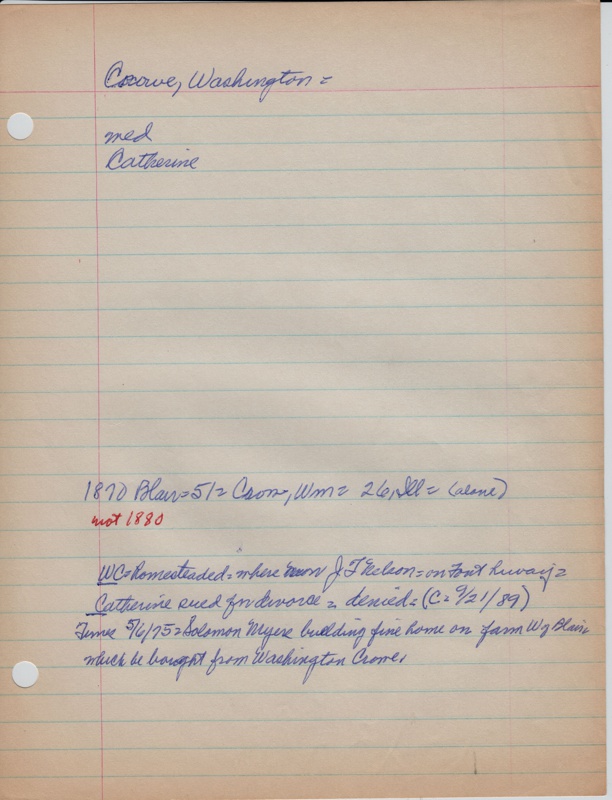 Crowe, Washington =
med
Catherine
1870 Blair = 51 = Crow, Wm = 26, Ill = (alone)
not 1880
WC = Homesteaded = where J T Nelson = on Font =
Catherine sued for divorce = denied = (C = 9/21/89)
Times 5/6/75 = Solomon Myers building fine home on farm W of Blair
which he bought from Washington Crowe.